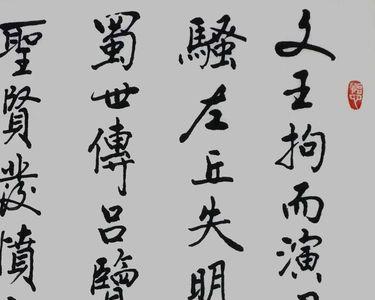 文王拘而演
騷左丘失明
蜀世傳呂覽
聖賢發憤